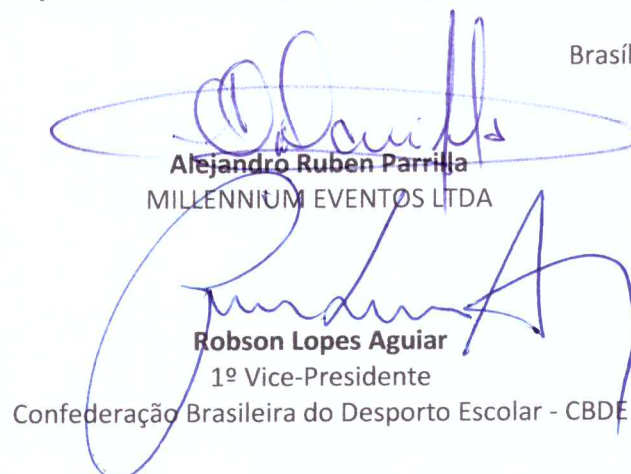 Brasíl
Alejandro Ruben Parrilla
MILLENNIUM EVENTOS LTDA
Robson Lopes Aguiar
1º Vice-Presidente
Confederação Brasileira do Desporto Escolar - CBDE